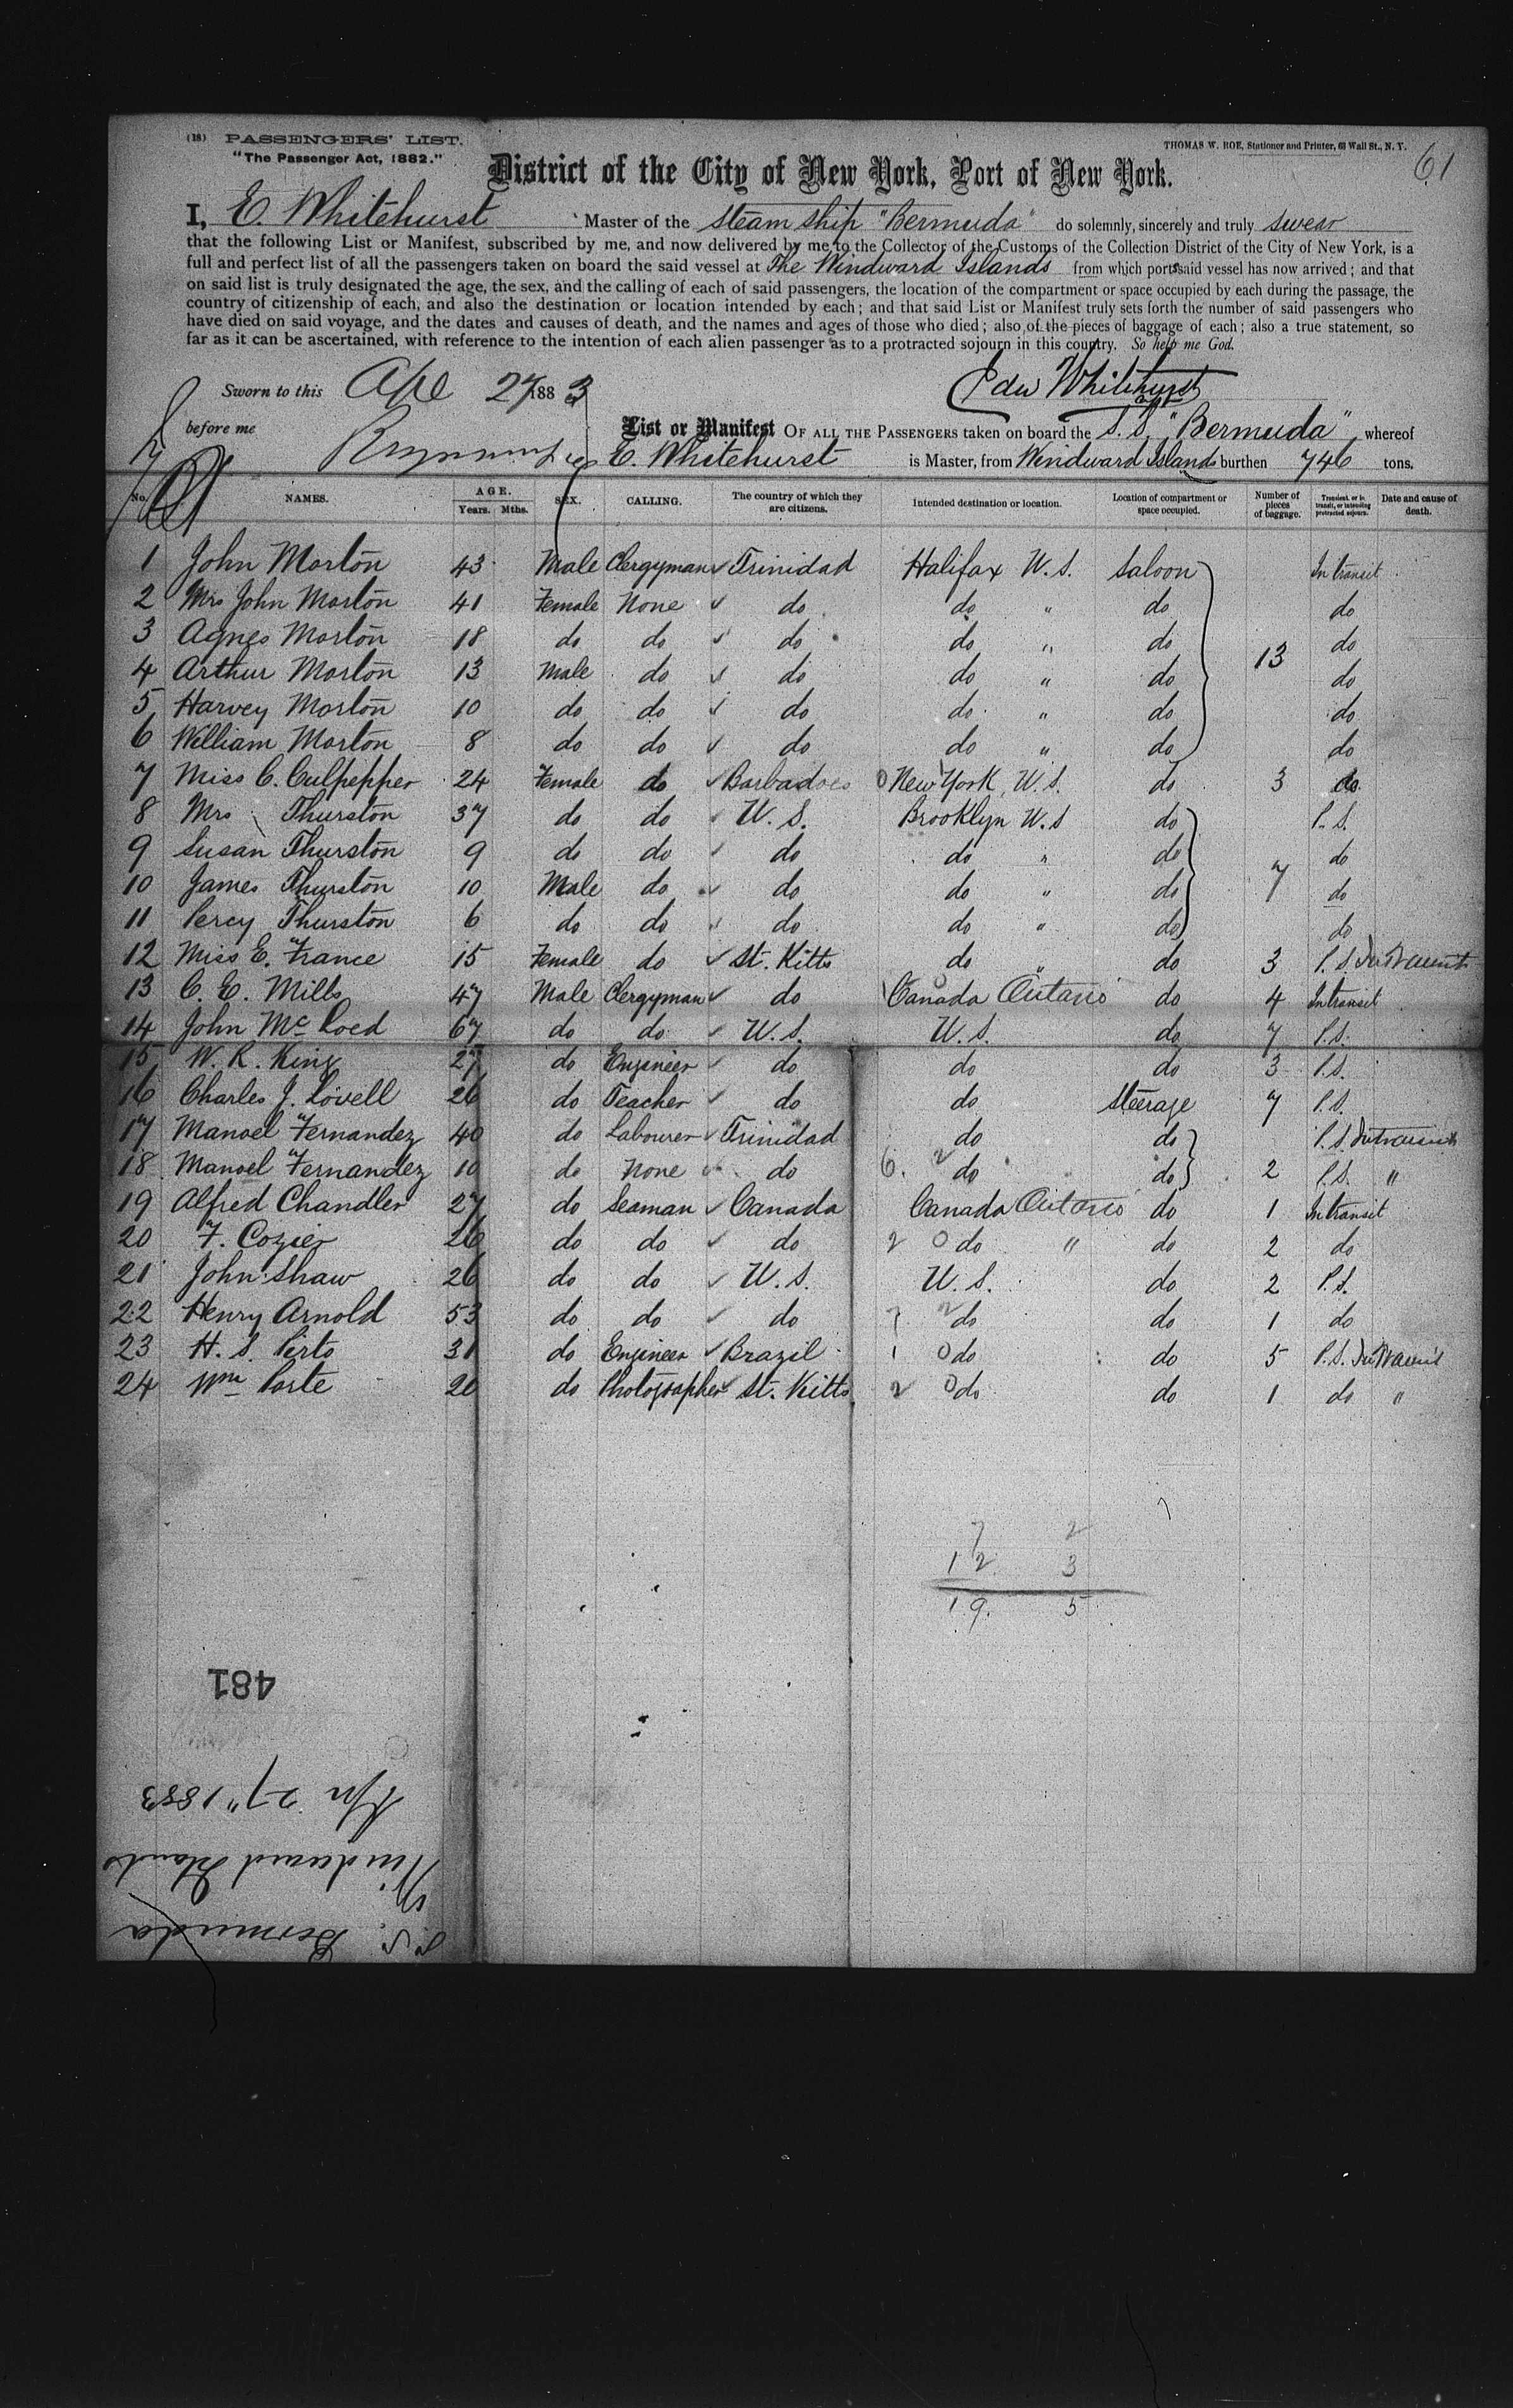 (18) PASSENGERS' LIST.
"The Passenger Act, 1882."
THOMAS W. ROE, Stationer and Printer, 63 Wall St., N. Y.
61
District of the City of New York, Port of New York.
I, E. Whitehurst Master of the Steam Ship "Bermuda" do solemnly, sincerely and truly swear
that the following List or Manifest, subscribed by me, and now delivered by me to the Collector of the Customs of the Collection District of the City of New York, is a
full and perfect list of all the passengers taken on board the said vessel at The Windward Islands from which ports said vessel has now arrived; and that
on said list is truly designated the age, the sex, and the calling of each of said passengers, the location of the compartment or space occupied by each during the passage, the
country of citizenship of each, and also the destination or location intended by each; and that said List or Manifest truly sets forth the number of said passengers who
have died on said voyage, and the dates and causes of death, and the names and ages of those who died; also, of the pieces of baggage of each; also a true statement, so
far as it can be ascertained, with reference to the intention of each alien passenger as to a protracted sojourn in this country. So help me God.
Sworn to this Apl 27 1883
Edw Whitehurst
before me
List or Manifest OF ALL THE PASSENGERS taken on board the S.S. "Bermuda" whereof
E. Whitehurst is Master, from Windward Islands burthen 746 tons.
No. NAMES. AGE. Years. Mths. SEX. CALLING. The country of which they are citizens. Intended destination or location. Location of compartment or space occupied. Number of pieces of baggage. Transient, or in transit, or intending protracted sojourn. Date and cause of death.
1 John Morton 43 Male Clergyman Trinidad Halifax W.S. Saloon In transit
2 Mrs John Morton 41 Female None do do " do do
3 Agnes Morton 18 do do do do " do do
4 Arthur Morton 13 Male do do do " do 13 do
5 Harvey Morton 10 do do do do " do do
6 William Morton 8 do do do do " do do
7 Miss C. Culpepper 24 Female do Barbadoes 0 New York, U.S. do 3 do
8 Mrs Thurston 37 do do U.S. Brooklyn U.S do P.S.
9 Susan Thurston 9 do do do do " do do
10 James Thurston 10 Male do do do " do 7 do
11 Percy Thurston 6 do do do do " do do
12 Miss E. France 15 Female do St. Kitts do " do 3 P.S. In transit
13 C. E. Mills 47 Male Clergyman do Canada Ontario do 4 In transit
14 John McLoed 67 do do U.S. U.S. do 7 P.S.
15 W. R. King 27 do Engineer do do do 3 P.S.
16 Charles J. Lovell 26 do Teacher do do Steerage 7 P.S.
17 Manoel Fernandez 40 do Labourer Trinidad do do P.S. In transit
18 Manoel Fernandez 10 do None do 6. 2 do do 2 P.S. "
19 Alfred Chandler 27 do Seaman Canada Canada Ontario do 1 In transit
20 F. Cozier 26 do do do 2 0 do " do 2 do
21 John Shaw 26 do do U.S. U.S. do 2 P.S.
22 Henry Arnold 53 do do do 7 2 do do 1 do
23 H. S. Pirto 31 do Engineer Brazil 1 0 do do 5 P.S. In transit
24 Wm Porte 20 do Photographer St. Kitts 2 0 do do 1 do "
7 2
12 3
19. 5
481
Apr 27" 1883
Windward Islands
S.S. Bermuda